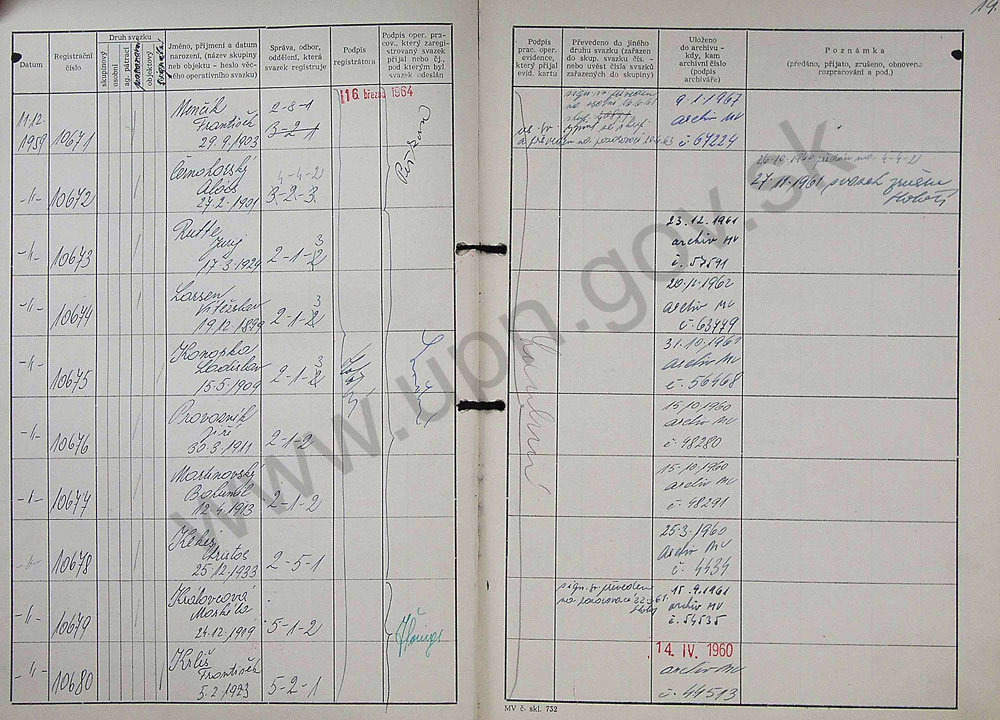 19.
Datum
Registrační
číslo
Druh svazku
skupinový
osobní
ag. pátrací
objektový
Jméno, příjmení a datum
narození, (název skupiny
neb objektu - heslo věc-
ného operativního svazku)
Správa, odbor,
oddělení, která
svazek registruje
Podpis
registrátora
Podpis oper. pra-
cov., který zaregi-
strovaný svazek
přijal nebo čj.,
pod kterým byl
svazek odeslán
11.12.
1959
10671
Menčík
František
29.9.1903
2-8-1
3-2-1
16. březen 1964
-"-
10672
Černohorský
Alois
27.2.1901
4-4-2
3-2-3
-"-
10673
Rutte
17.3.1924
3
2-1-2
-"-
10674
Larsen
Vítězslav
19.12.1899
3
2-1-2
-"-
10675
Konopka
Ladislav
15.5.1909
3
2-1-2
-"-
10676
Provazník
Jiří
30.3.1911
2-1-2
-"-
10677
Martinovský
Bohumil
12.4.1913
2-1-2
-"-
10678
Christos
25.12.1933
2-5-1
-"-
10679
Královcová
Markéta
24.12.1909
5-1-2
-"-
10680
Krliš
František
5.2.1923
5-2-1
Podpis
prac. oper.
evidence,
který přijal
evid. kartu
Převedeno do jiného
druhu svazku (zařazen
do skup. svazku čís. -
nebo uvést čísla svazků
zařazených do skupiny)
Uloženo
do archivu -
kdy, kam
archivní číslo
(podpis
archiváře)
Poznámka
(předáno, přijato, zrušeno, obnoveno,
rozpracování a pod.)
9.1.1967
archiv MV
č. 67224
26.10.1960 předán na 4-4-2
27.11.1961, svazek zrušen
23.12.1961
archiv MV
č. 57591
20.11.1962
archiv MV
č. 63779
31.10.1961
archiv MV
č. 56468
15.10.1960
archiv MV
č. 48280
15.10.1960
archiv MV
č. 48291
25.3.1960
archiv MV
č. 4434
sign. sv. převeden
na pozorovací 22.3.61
15.9.1961
archiv MV
č. 54535
14. IV. 1960
archiv MV
č. 44513
MV č. skl. 732
www.upn.gov.sk